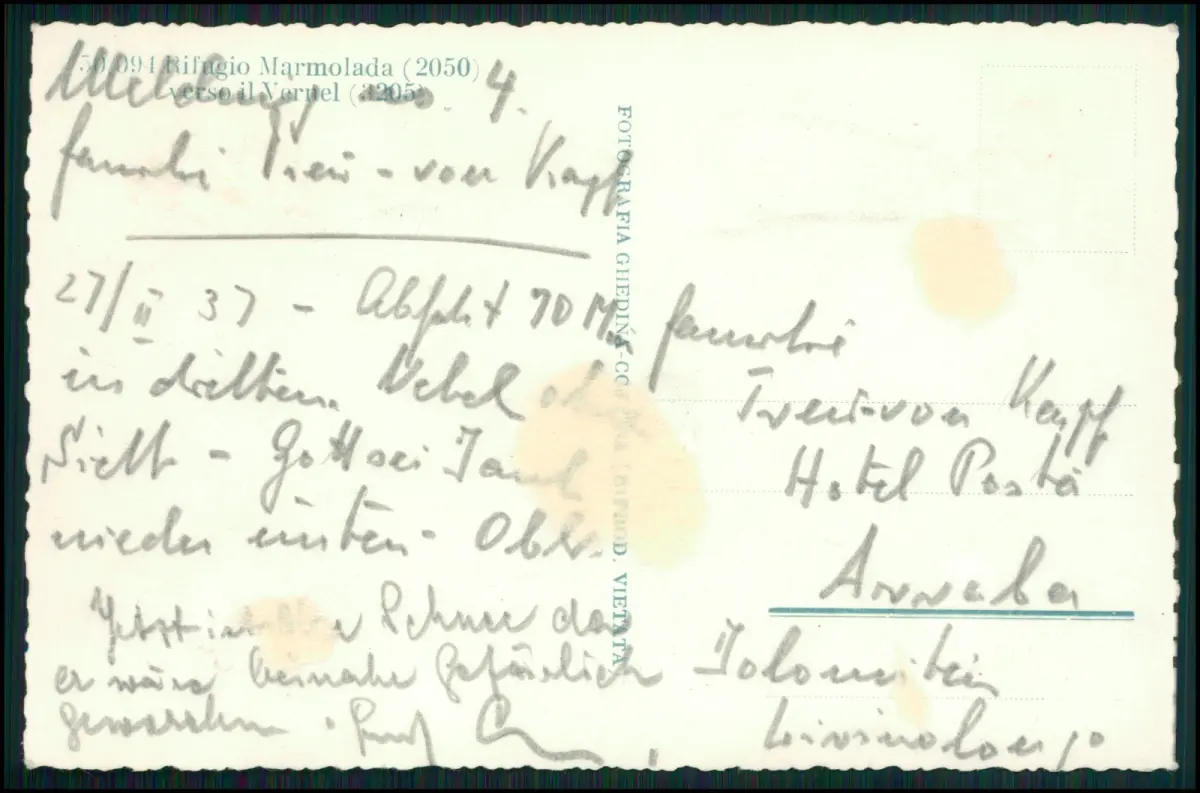 50,094 Rifugio Marmolada (2050)
verso il Vernel (3205)
Meldung 4.
familie Treu - von Kapf
27/II 37 - Abfahrt 70 M.
in dritten Nebel
Sicht - Gott sei Dank
wieder unten -
Jetzt ist der Schnee da
er wäre beinahe gefährlich
geworden.
FOTOGRAFIA GHEDINA - CORTINA RIPROD. VIETATA
familie
Treu-von Kapf
Hotel Posta
Arraba
Dolomiten
Livinalongo